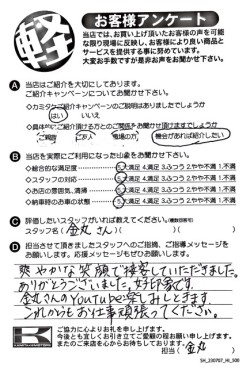 軽
お客様アンケート
当店では、お買い上げ頂いたお客様の声を可能
な限り現場に反映し、お客様により良い商品と
サービスを提供する事に努めています。
大変お手数ですが是非お声をお聞かせ下さい。
A 当店はご紹介を大切にしております。
ご紹介キャンペーンについてお聞かせ下さい。
◇カミタケご紹介キャンペーンのご説明はありましたでしょうか
はい いいえ
◇具体的にご紹介頂ける方とのご関係をお聞かせ頂けますでしょうか
ご親族 お友人 職場の方 機会があれば紹介したい
B 当店を実際にご利用になった印象をお聞かせ下さい。
◇総合的な満足度 5.大満足 4.満足 3.ふつう 2.やや不満 1.不満
◇スタッフの対応 5.大満足 4.満足 3.ふつう 2.やや不満 1.不満
◇お店の雰囲気、清掃 5.大満足 4.満足 3.ふつう 2.やや不満 1.不満
◇納車時のお車の状態 5.大満足 4.満足 3.ふつう 2.やや不満 1.不満
C 評価したいスタッフがいれば教えてください。(複数回答可)
スタッフ名( 金丸さん )( )
D 担当させて頂きましたスタッフへのご指摘、ご指導メッセージを
お願いします。応援メッセージもぜひお願いします。
爽やかな笑顔で接客していただきました。
ありがとうございました。好印象です。
金丸さんのYoutube楽しみしてます。
これからもお仕事頑張ってください。
K
ご協力に心よりお礼を申し上げます。
今後とも宜しくお引き立てご愛顧の程お願い申し上げます。
またのご来店を心からお待ちしております。
担当( 金丸 )
SH_230707_MI_300